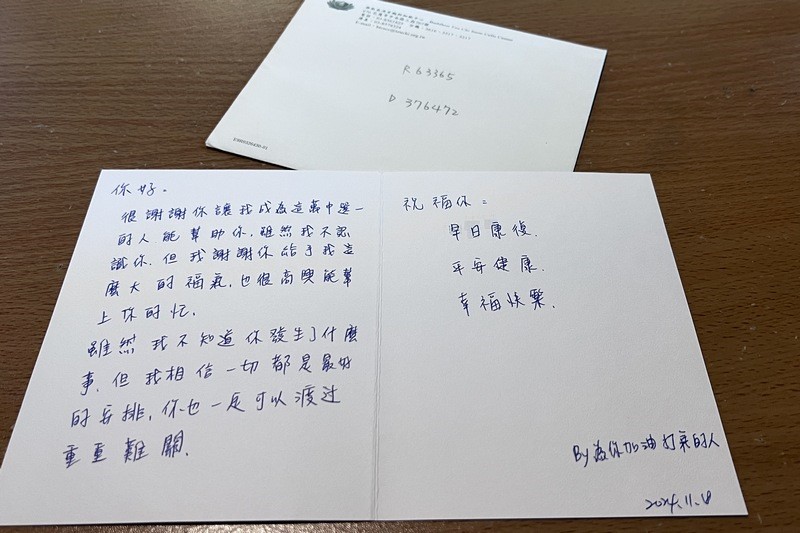 R 63365
D 376472
你好.
很謝謝你讓我成為這萬中選一
的人能幫助你.雖然我不認
識你.但我謝謝你給予我這
麼大的福氣.也很高興能幫
上你的忙.
雖然我不知道你發生了什麼
事.但我相信一切都是最好
的安排.你也一定可以渡過
重重難關.
祝福你:
早日康復.
平安健康.
幸福快樂.
By為你加油打氣的人